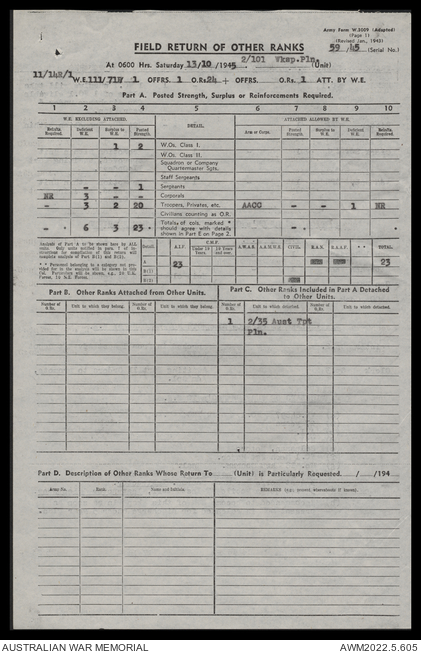 Army Form W.3009 (Adapted)
(Page 1)
(Revised Jan., 1945)
FIELD RETURN OF OTHER RANKS
59 /45 (Serial No.)
2/101 Wksp.Pln.
At 0600 Hrs. Saturday 13/10/1945 (Unit)
11/142/1
W.E. 111/71W 1 OFFRS. 1 O.Rs 24 + OFFRS. O.Rs. 1 ATT. BY W.E.
Part A. Posted Strength, Surplus or Reinforcements Required.
1 2 3 4 5 6 7 8 9 10
W.E. EXCLUDING ATTACHED. DETAIL. ATTACHED ALLOWED BY W.E.
Reinfts. Required. Deficient W.E. Surplus to W.E. Posted Strength. Arm or Corps. Posted Strength. Surplus to W.E. Deficient W.E. Reinfts. Required.
1 2 W.Os. Class I.
W.Os. Class II.
Squadron or Company Quartermaster Sgts.
Staff Sergeants
- - 1 Sergeants
NR 3 - - Corporals
- 3 2 20 Troopers, Privates, etc. AACC - - 1 NR
Civilians counting as O.R.
- * 6 3 23 * Totals of cols. marked * should agree with details shown in Part E on Page 2. - *
Analysis of Part A to be shown here by ALL units.
Detail. A.I.F. C.M.F. A.W.A.S. A.A.M.W.S. CIVIL. R.A.N. R.A.A.F. * * TOTAL.
Under 19 Years. 19 Years and over.
A 23 23
B(1)
B(2)
Part B. Other Ranks Attached from Other Units.
Part C. Other Ranks Included in Part A Detached to Other Units.
Number of O.Rs. Unit to which they belong. Number of O.Rs. Unit to which they belong. Number of O.Rs. Unit to which detached. Number of O.Rs. Unit to which detached.
1 2/35 Aust Tpt
Pln.
Part D. Description of Other Ranks Whose Return To (Unit) is Particularly Requested. / /194
Army No. Rank Name and Initials REMARKS (e.g., present whereabouts if known).
AUSTRALIAN WAR MEMORIAL
AWM2022.5.605